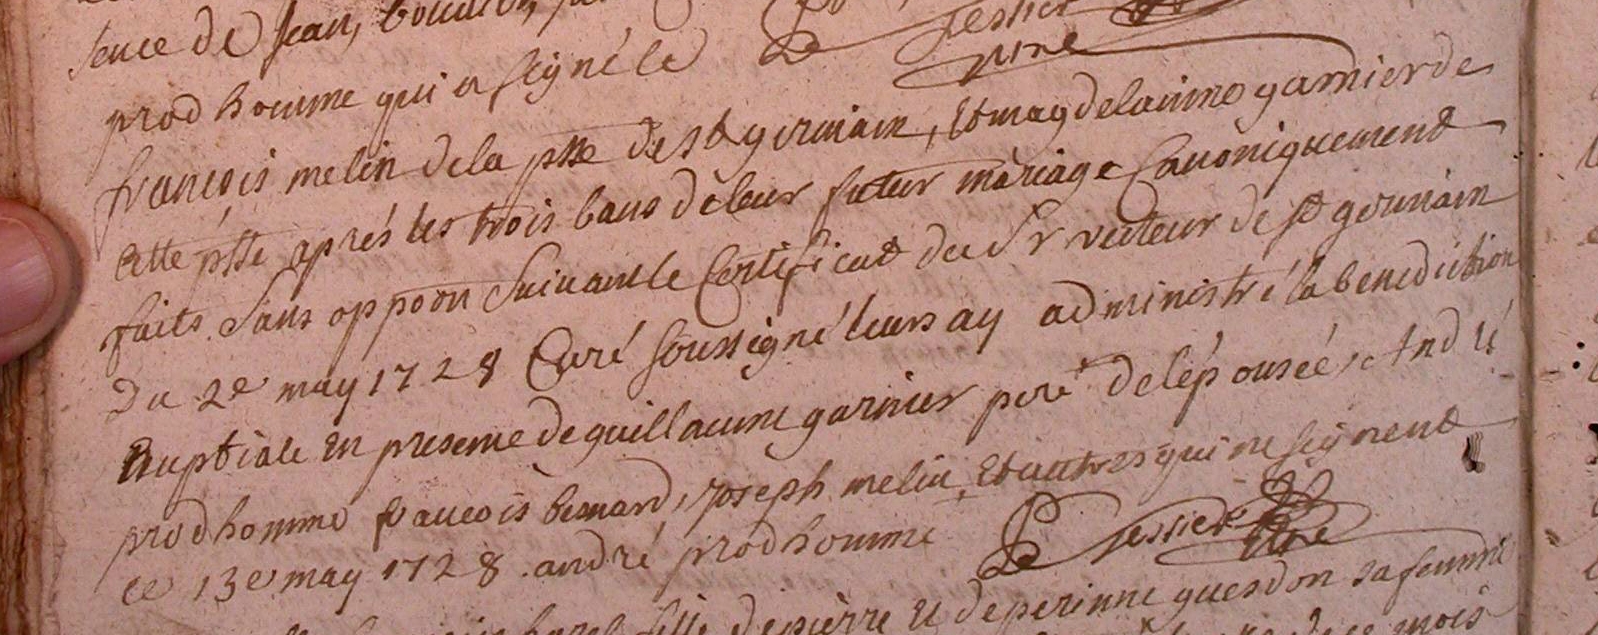 sence de Jean, bouillon,
prodhomme qui a signé le P Tessier
curé
françois melin de la psse de st germain, Et magdelainne garnier de
cette psse aprés les trois bans de leur futur mariage Canoniquement
faits sans oppoon Suivant le Certificat du Sr recteur de st germain
Du 2e may 1728 Curé soussigné leurs ay administré la benediction
Nuptiale en presence de guillaume garnier pere de lépousée, André
prodhomme francois besnard, Joseph melin, Et autres qui ne signent
ce 13e may 1728. andré prodhomme P Tessier
curé
fille de pierre et de perinne quesdon sa femme
de ce mois